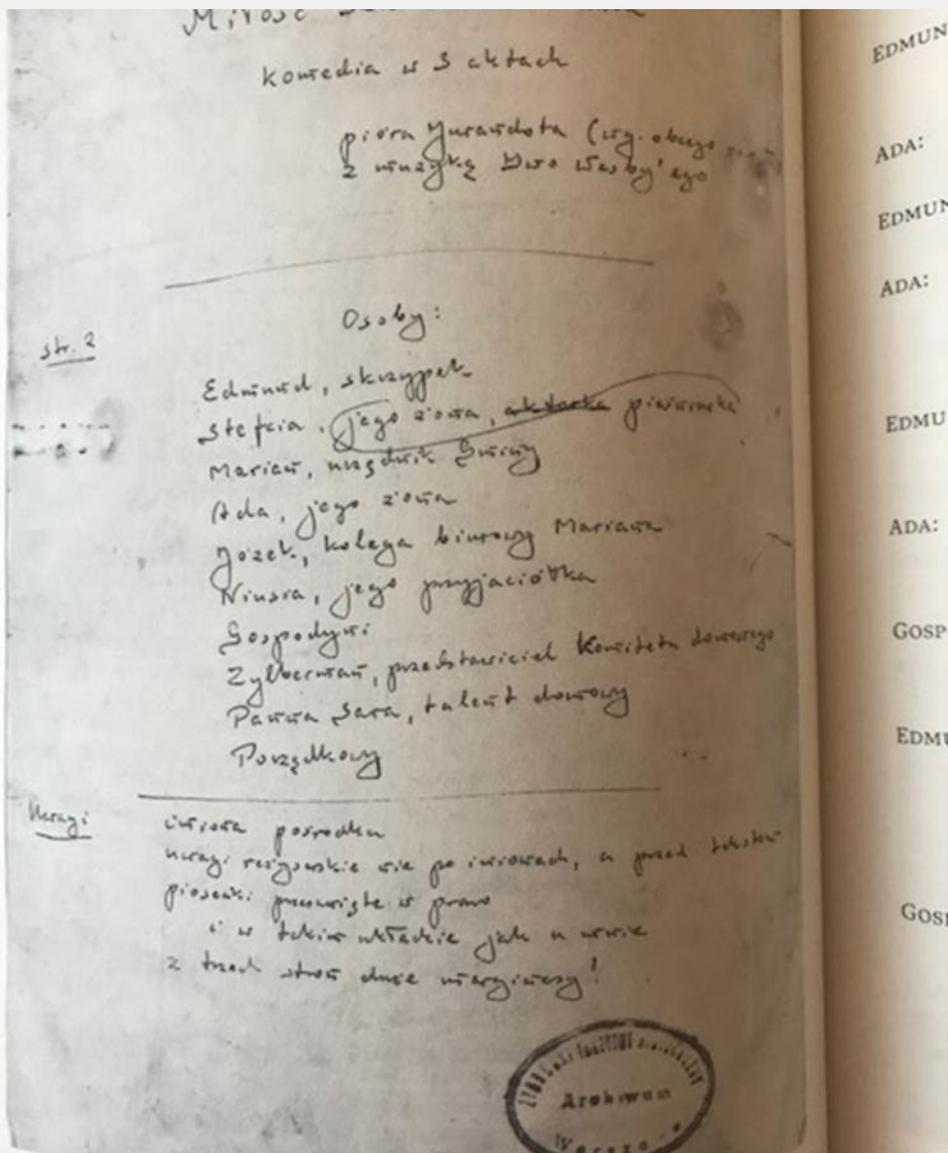 Miłość
komedia w 3 aktach
pióra Jurandota (wg. obcego
z muzyką Iwo Wesby'ego
str. 2
Osoby:
Edmund, skrzypek
Stefcia, jego żona, aktorka pieśniarka
Marian, urzędnik Gminy
Ada, jego żona
Józek, kolega biurowy Mariana
Niusia, jego przyjaciółka
Gospodyni
Zylberman, przedstawiciel Komitetu domowego
Panna Sara, talent domowy
Porządkowy
Uwagi
imiona pośrodku
uwagi reżyserskie nie po imionach, a przed tekstem
piosenki przesunięte w prawo
i w takim układzie jak u mnie
z trzech stron duże marginesy!
Archiwum
EDMUN
ADA:
EDMUN
ADA:
EDMU
ADA:
GOSP
EDMU
GOSP